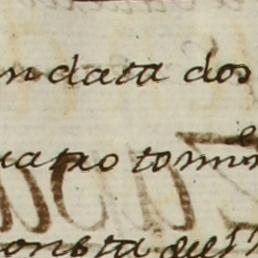 n data dos
uatro tomin
onsta que